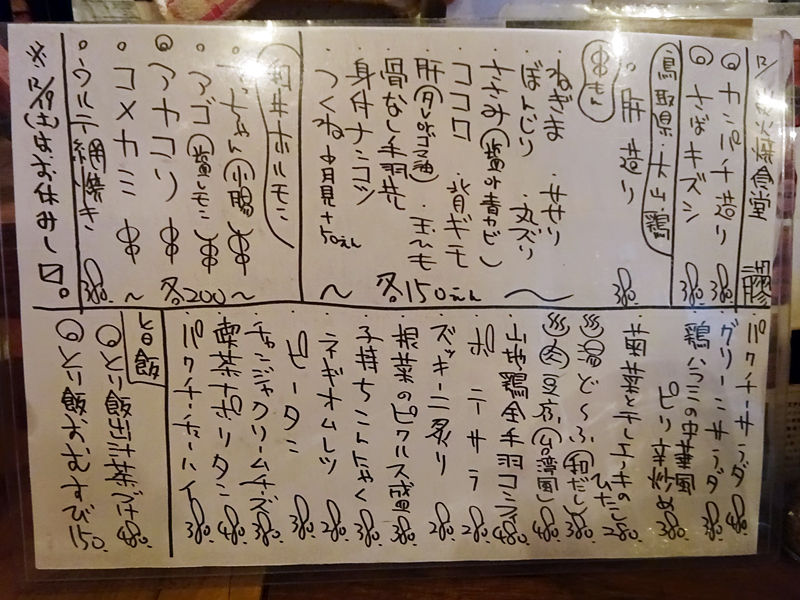 炭火焼食堂
◎カンパチ造り 380.
◎さばキズシ 380.
鳥取県・大山鶏
・肝造り 380.
串もん
・ねぎま
・ササリ
・ぼんじり
・丸ズリ
・ささみ
・ココロ
・背ギモ
・肝
・骨なし手羽先
・身付ナンコツ
・つくね 月見+50えん
〜各150えん〜
ホルモン
・アゴ
◎アカコリ 串
・コメカミ 串
・ウルテ網焼き 380.
〜各200〜
※12/19(土)はお休みします。
・パクチーサラダ 480.
・グリーンサラダ 380.
・鶏ハラミの中華風ピリ辛炒め 380.
・菊菜とエノキのひたし 280.
♨湯どーふ(和だし) 380.
♨肉豆ふ(台湾風) 480.
・地鶏全手羽コース 480.
・ポテサラ 280.
・ズッキーニ炙り 280.
・根菜のピクルス盛 380.
・子持ちこんにゃく 380.
・ネギオムレツ 280.
・ピータン 380.
・チャンジャクリームチーズ 380.
・喫茶ナポリタン 480.
・パクチーチューハイ 380.
〆ご飯
◎とり飯出汁茶づけ 480.
◎とり飯おむすび 150.